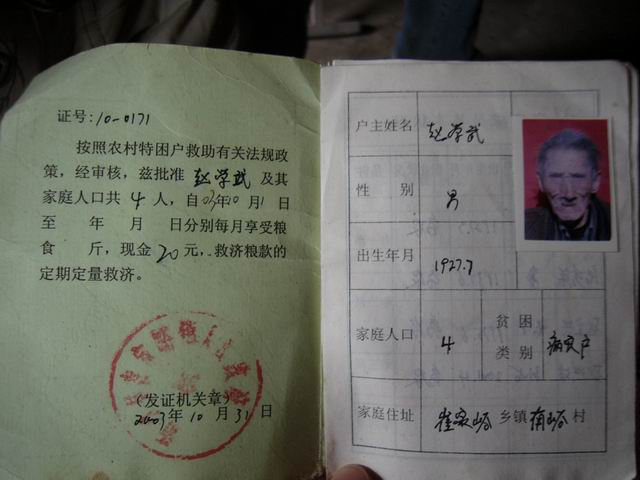 证号:10-0171
按照农村特困户救助有关法规政
策，经审核，兹批准 赵学武 及其
家庭人口共 4 人，自03年10月1日
至 年 月 日分别每月享受粮
食 斤，现金20元，救济粮款的
定期定量救济。
(发证机关章)
2003年10月31日
户主姓名 赵学武
性 别 男
出生年月 1927.7
家庭人口 4 贫困类别 病灾户
家庭住址 崔家峪乡镇南峪村